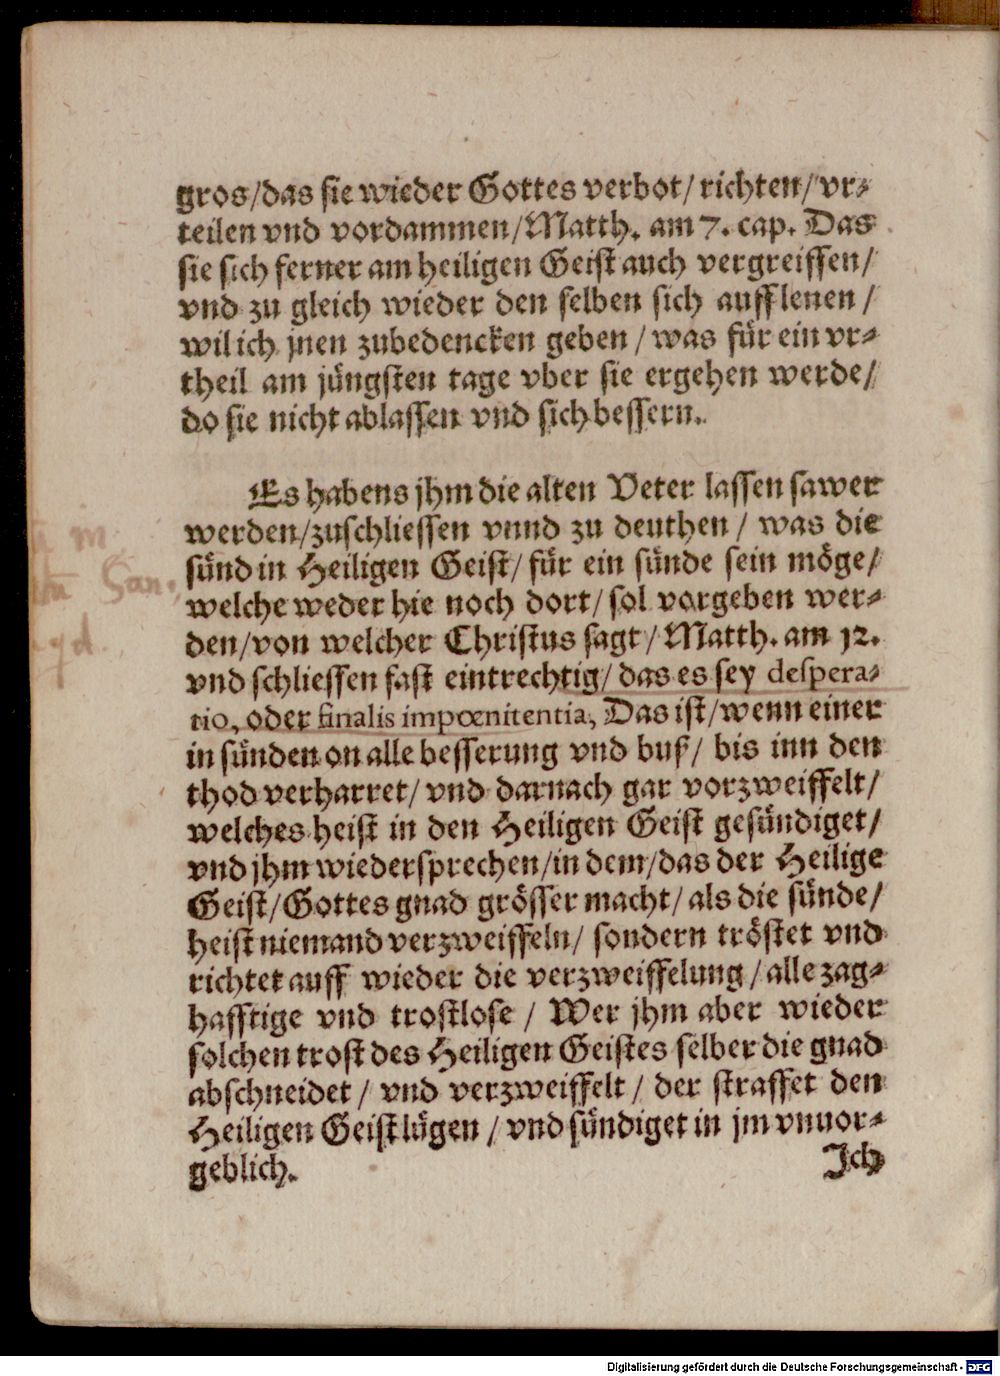 gros/das sie wieder Gottes verbot/ richten/ vr⸗
teilen vnd vordammen/Matth. am 7. cap. Das
sie sich ferner am heiligen Geist auch vergreiffen/
vnd zu gleich wieder den selben sich aufflenen /
wil ich jnen zubedencken geben / was für ein vr⸗
theil am jüngsten tage vber sie ergehen werde/
do sie nicht ablassen vnd sich bessern.
Es habens jhm die alten Veter lassen sawer
werden/zuschliessen vnnd zu deuthen / was die
sünd in Heiligen Geist/ für ein sünde sein möge/
welche weder hie noch dort/ sol vorgeben wer⸗
den/von welcher Christus sagt/ Matth. am 12.
vnd schliessen fast eintrechtig/ das es sey despera⸗
tio, oder finalis impœnitentia, Das ist/wenn einer
in sünden on alle besserung vnd buß/ bis inn den
thod verharret/ vnd darnach gar vorzweiffelt/
welches heist in den Heiligen Geist gesündiget/
vnd jhm wiedersprechen/in dem/das der Heilige
Geist/Gottes gnad grösser macht/ als die sünde/
heist niemand verzweiffeln/ sondern tröstet vnd
richtet auff wieder die verzweiffelung /alle zag⸗
hafftige vnd trostlose / Wer jhm aber wieder
solchen trost des Heiligen Geistes selber die gnad
abschneidet / vnd verzweiffelt / der straffet den
Heiligen Geist lügen / vnd sündiget in jm vnuor⸗
geblich.
Ich
Digitalisierung gefördert durch die Deutsche Forschungsgemeinschaft - DFG